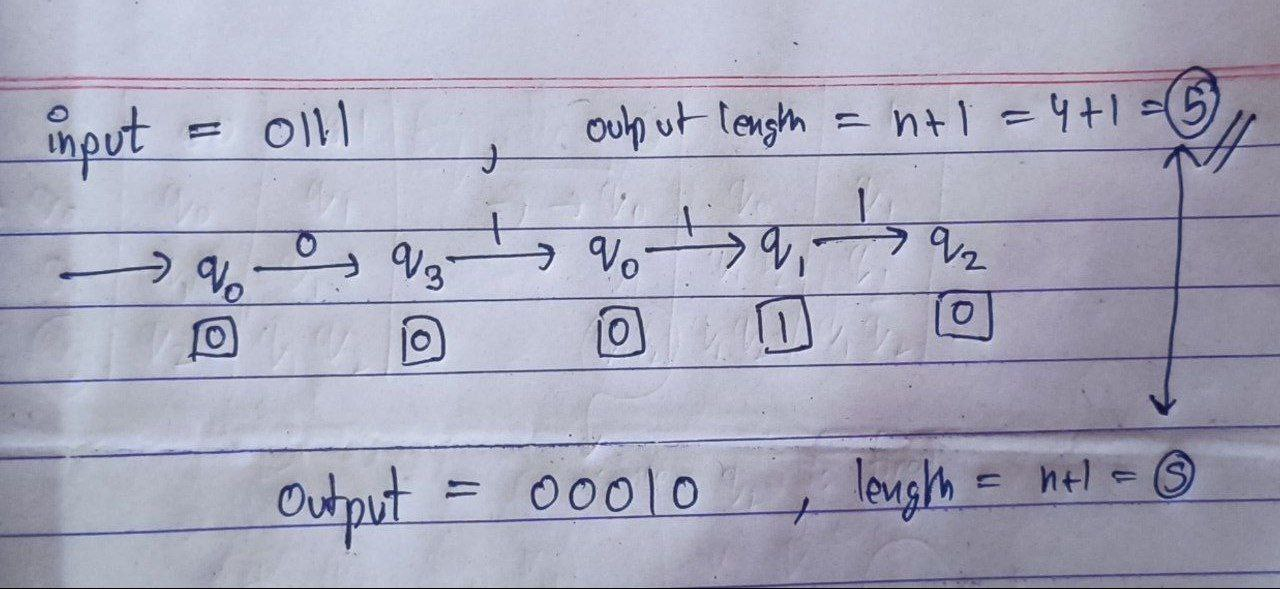 input = 0111 , output length = n+1 = 4+1 = 5 //
0 1 1 1
→ q₀ → q₃ → q₀ → q₁ → q₂
0 0 0 1 0
Output = 00010 , length = n+1 = 5